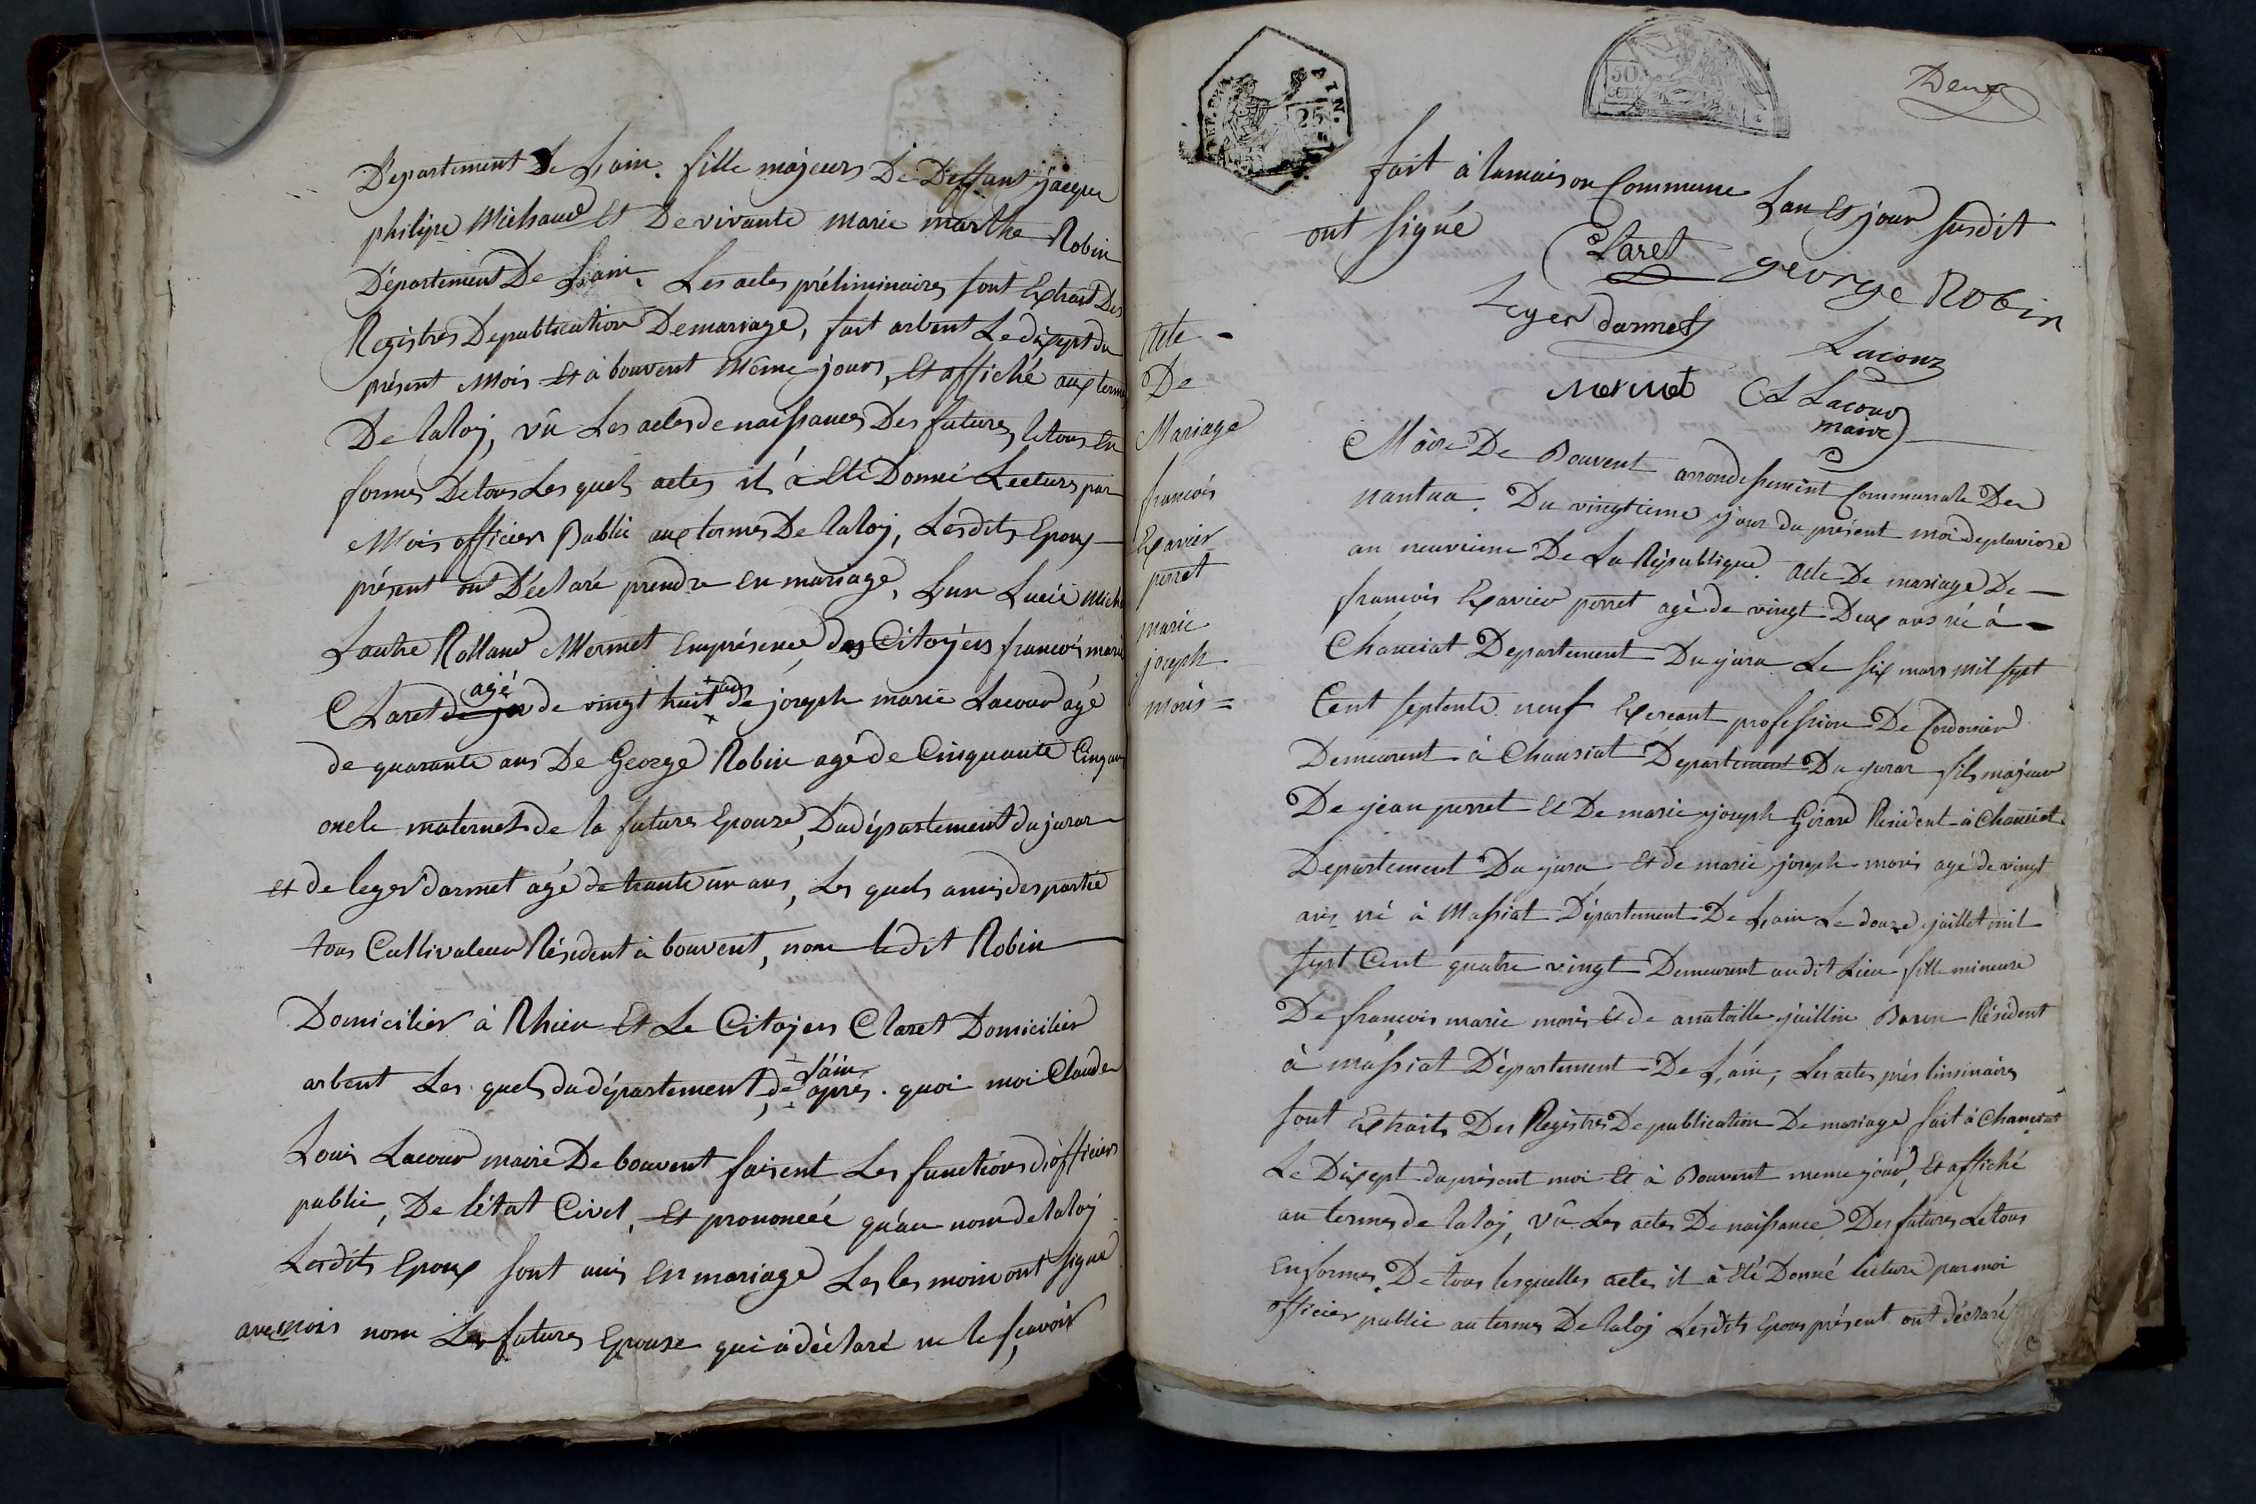 Département De Lain. fille majeurs De Deffant jacque
philipe Michaud Et De vivante marie marthe Robin
Département De Lain. Les actes préliminaires sont Extrait Des
Registres Depublication Demariage, fait arbent Le dixsept du
présent Mois Et à bouvent même jours, Et affiché aux termes
De laloj, vû Les actes de naissances Des futures, le tous En
formes De tous Les quels actes il à Eté Donné Lectures par
Mois officier Public aux termes De laloj, Lesdits Epoux
présent ont Déclaré prendre En mariage, Lun Lucie Micha
Lautre Rolland Mermet Enprésence des Citoyens francois marie
Claret agé de vingt huit ans de joseph marie Lacour agé
de quarante ans De George Robin agé de Cinquante Cinq ans
oncle maternel de la futures Epouze, Dudépartement du jurar
et de leger darmet agé de trante un ans, Les quels amis des partie
tous Cultivateur Résident à bouvent, nom ledit Robin
Domicilier à Rhien Et Le Citoyen Claret Domicilier
arbent Les quels du département, de Lain après. quoi moi Claude
Louis Lacour maire De bouvent faisent Les functions d'officiers
public, De l'état Civel, Et prononceé qu'au nom de laloj
Lesdits Epoux sont unis En mariage Les les moin ont signé
avec mois nom La futures Epouse qui à déclaré ne le scavoir
REP. FRA. AIN. 25
50 CENT
Deux
fait à lamaison Commune Lan Et jour susdit
ont signé
Claret george Robin
Leger darmet
Lacour
Mermet CL Lacour
maire
Acte
De
Mariage
francois
Exavier
perret
marie
joseph
moris =
Maire De Bouvent arrondessement Communale De
nantua. Du vingtieme jour du présent moi de pluviose
an neuvieme De La République. Acte De mariage De
francois Exavier perret agé de vingt Deux ans né à
Chanciat Département Du jura Le six mars mil sept
Cent septente neuf Exercant profession De Cordonier
Demeurent à Chansiat Département Du jurar fils majeur
De jean perret Et De marie joseph Girard Résident à Chanciat
Departement Du jura Et de marie joseph moris agé de vingt
ans né à Massiat Département De Lain Le douze juillet mil
sept Cent quatre vingt Demeurent audit Lieu fille mineure
De francois marie moris Et de anatoille juillin Baron Résident
à massiat Département De Lain, Les actes prés liminaires
sont Extraits Des Registres De publication De mariage fait à Chanciat
Le Dixsept du présent moi Et à Bouvent meme jour, Et affiché
au termes de laloj, vû Les actes De naissance Des futures Le tous
En formes. De tous lesquelles actes il à Eté Donné lecture par moi
officier public au termes De laloj Lesdits Epous présent ont déclaré